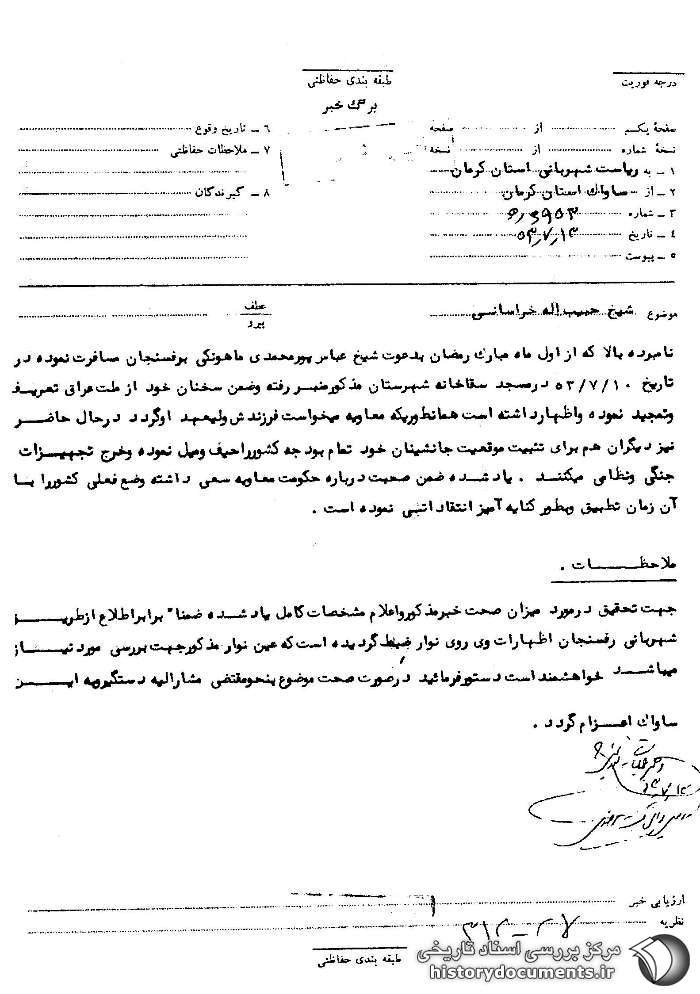 درجه فوریت
طبقه بندی حفاظتی
برگ خبر
صفحهٔ یکم از صفحه
نسخهٔ شماره از نسخه
۱ ــ به ریاست شهربانی استان کرمان
۲ ــ از ساواک استان کرمان
۳ ــ شماره
۴ ــ تاریخ ۵۳٫۷٫۱۳
۵ ــ پیوست
۶ ــ تاریخ وقوع
۷ ــ ملاحظات حفاظتی
۸ ــ گیرندگان
موضوع شیخ حبیب اله خراسانی
عطف
پیرو
نامبرده بالا که از اول ماه مبارک رمضان بدعوت شیخ عباس پورمحمدی ماهونکی برفسنجان مسافرت نموده در
تاریخ ۵۳/۷/۱۰ درمسجد سقاخانه شهرستان مذکورمنبر رفته وضمن سخنان خود از ملت عراق تعریف
وتمجید نموده واظهارداشته است همانطوریکه معاویه میخواست فرزندش ولیعهد اوگردد درحال حاضر
نیز دیگران هم برای تثبیت موقعیت جانشینان خود تمام بودجه کشورراحیف ومیل نموده وخرج تجهیزات
جنگی ونظامی میکنند . یاد شده ضمن صحبت درباره حکومت معاویه سعی داشته وضع فعلی کشوررا با
آن زمان تطبیق وبطور کنایه آمیز انتقاداتی نموده است .
ملاحظات .
جهت تحقیق درمورد میزان صحت خبرمذکورواعلام مشخصات کامل یاد شده ضمنا" برابراطلاع ازطریق
شهربانی رفسنجان اظهارات وی روی نوار ضبط گردیده است که عین نوار مذکورجهت بررسی مورد نیاز
میباشد خواهشمند است دستورفرمائید درصورت صحت موضوع بنحومقتضی مشارالیه دستگیروبه این
ساواک اعزام گردد .
ارزیابی خبر
نظریه
طبقه بندی حفاظتی
مرکز بررسی اسناد تاریخی
historydocuments.ir